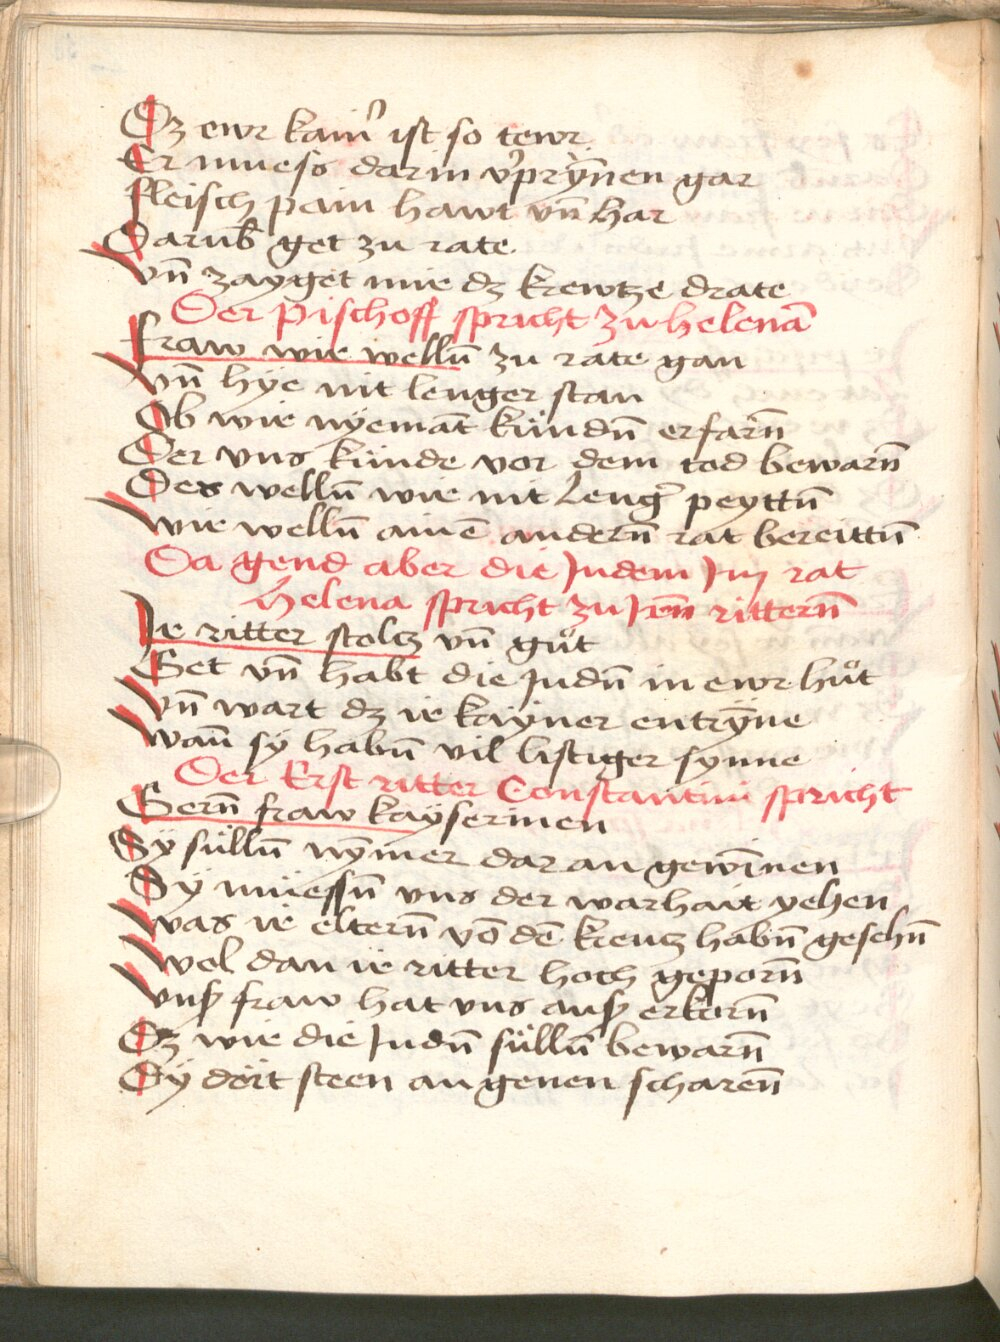 Dz ewr kainr̉ ist so tewr
Er muess darin v̉prỹnen gar
fleisch pain hawt vn̄ har
Darub̄ get zu rate
vn̄ zayget mir dz krewtze drate
Der Pischoff spricht zu helenā
fraw wir welln̄ zu rate gan
vn̄ hÿe nit lenger stan
Ob wir nÿemāt kündn̄ erfarn̄
Der vns künde vor dem tod bewarn̄
Des welln̄ wir nit lengr̉ peyttn̄
wir welln̄ ainē andern̄ rat bereittn̄
Da gend aber die Juden Jn̄ rat
Helena spricht zu Jren̄ rittern̄
Ir ritter stoltz vn̄ gůt
Get vn̄ habt die Judn̄ in ewr hůt
vn̄ wart dz ir kayner entrȳne
wan̄ sÿ habn̄ vil listiger synne
Der Erst ritter Constantini spricht
Gern̄ fraw kaÿserinen
Sÿ sülln̄ nȳmer dar an gewīnen
Sÿ müessn̄ vns der warhait yehen
was ir eltern̄ vō dē kreutz habn̄ gesehn̄
wol dan ir ritter hoch geporn̄
vnsr̉ fraw hat vns ausz erkorn̄
Dz wir die Judn̄ sülln̄ bewarn̄
Dÿ dört steen an genen scharen̄